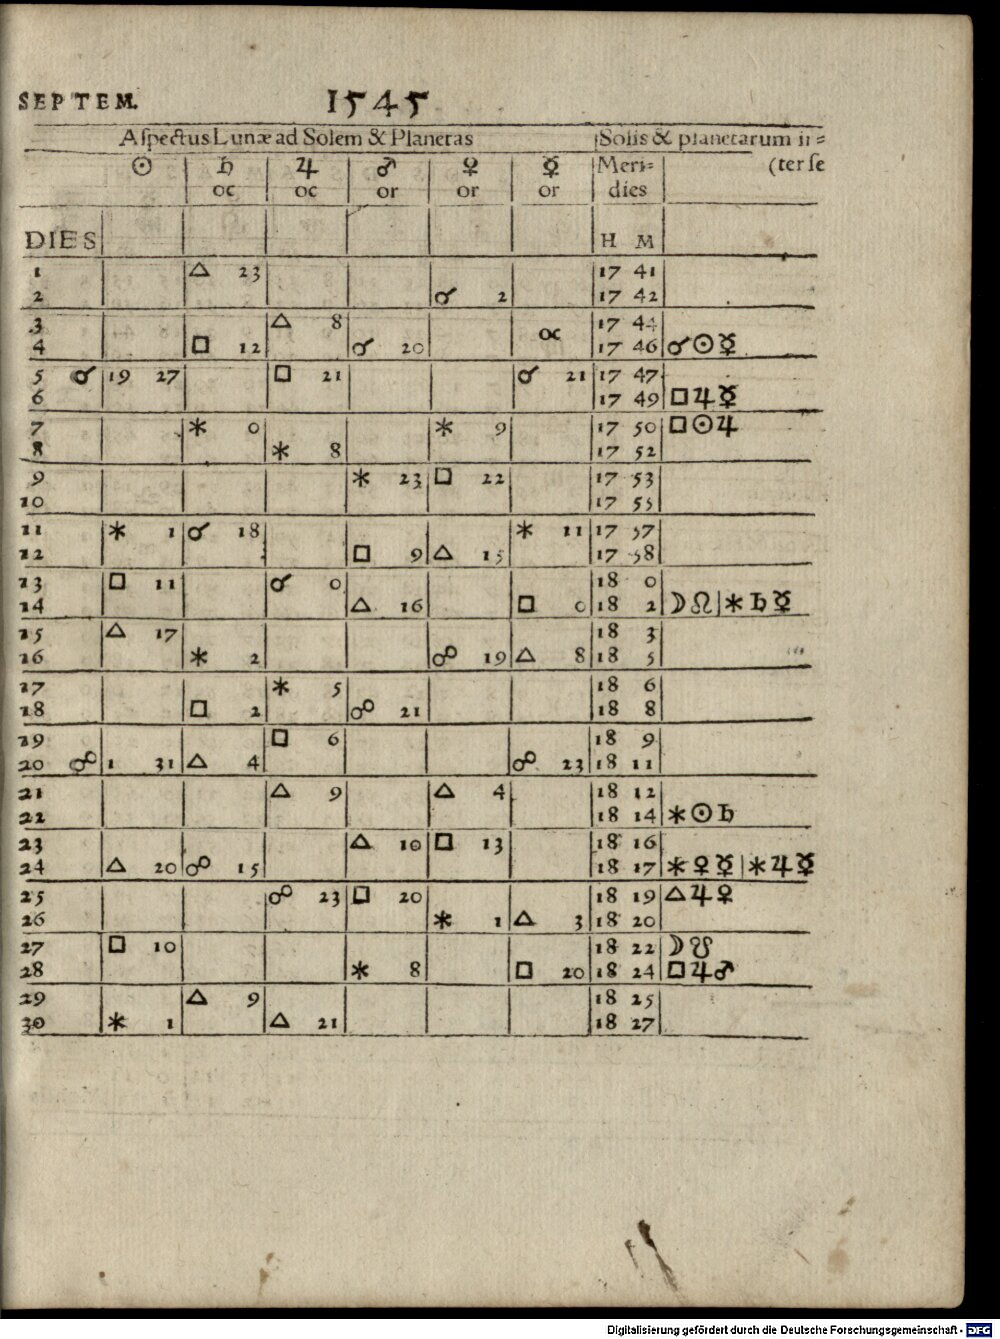 SEPTEM. 1545
Aspectus Lunæ ad Solem & Planetas | Solis & planetarum in=
☉ ♄ ♃ ♂ ♀ ☿ Meri= (ter se
oc oc or or or dies
DIES H M
1 △ 23 17 41
2 ☌ 2 17 42
3 △ 8 17 44
4 □ 12 ☌ 20 oc 17 46 ☌☉☿
5 ☌ 19 27 □ 21 ☌ 21 17 47
6 17 49 □♃☿
7 ⚹ 0 ⚹ 9 17 50 □☉♃
8 ⚹ 8 17 52
9 ⚹ 23 □ 22 17 53
10 17 55
11 ⚹ 1 ☌ 18 ⚹ 11 17 57
12 □ 9 △ 15 17 58
13 □ 11 ☌ 0 18 0
14 △ 16 □ 0 18 2 ☽☊|⚹♄☿
15 △ 17 18 3
16 ⚹ 2 ☍ 19 △ 8 18 5
17 ⚹ 5 18 6
18 □ 2 ☍ 21 18 8
19 □ 6 18 9
20 ☍ 1 31 △ 4 ☍ 23 18 11
21 △ 9 △ 4 18 12
22 18 14 ⚹☉♄
23 △ 10 □ 13 18 16
24 △ 20 ☍ 15 18 17 ⚹♀☿|⚹♃☿
25 ☍ 23 □ 20 18 19 △♃♀
26 ⚹ 1 △ 3 18 20
27 □ 10 18 22 ☽☋
28 ⚹ 8 □ 20 18 24 □♃♂
29 △ 9 18 25
30 ⚹ 1 △ 21 18 27
Digitalisierung gefördert durch die Deutsche Forschungsgemeinschaft - DFG